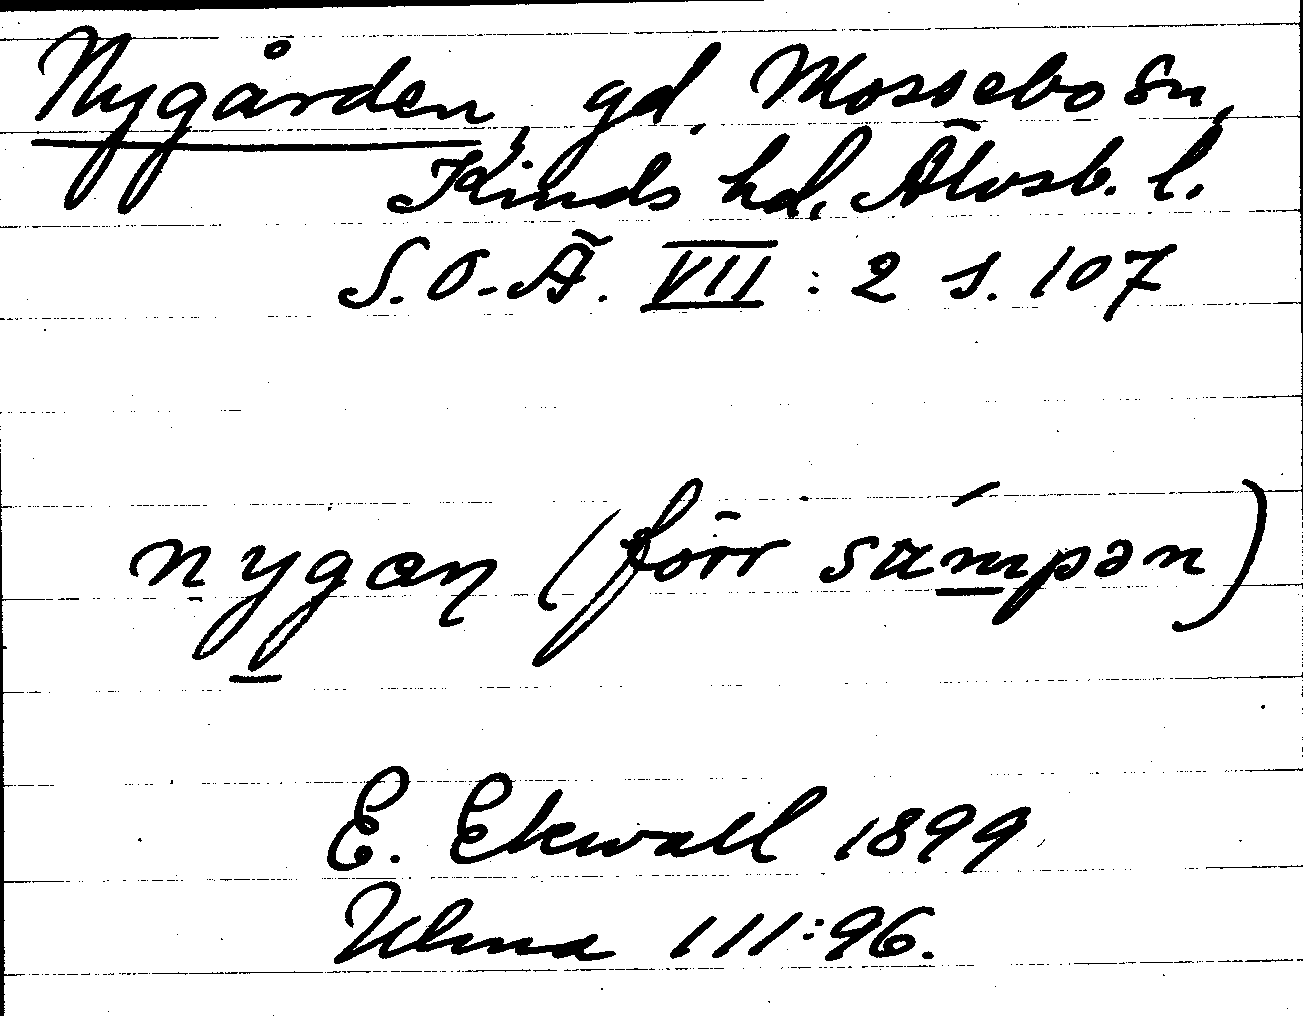 Nygården, gd, Mossebo sn,
Kinds hd, Älvsb. l.
S.O-Ä. VII : 2 s. 107
nygaŋ (förr sämpən)
E. Ekwall 1899
Ulma 111:96.